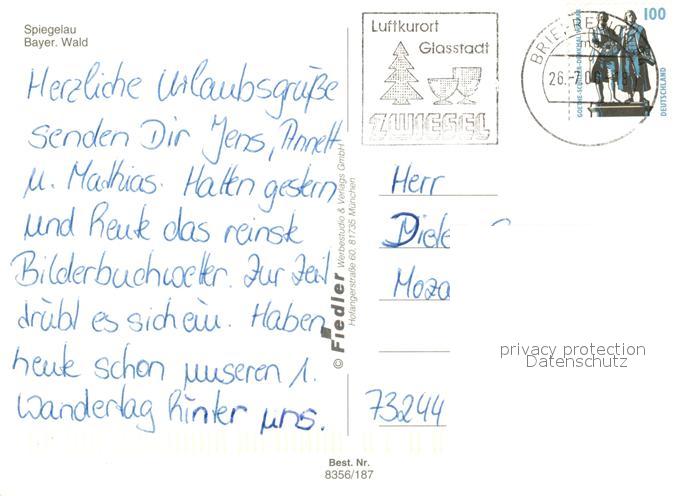 Spiegelau
Bayer. Wald
Herzliche Urlaubsgrüße
senden Dir Jens, Annett
u. Mathias. Hatten gestern
und heute das reinste
Bilderbuchwetter. Zur Zeit
trübt es sich ein. Haben
heute schon unseren 1.
Wandertag hinter uns.
© Fiedler Werbestudio & Verlags GmbH
Hofangerstraße 60, 81735 München
Best. Nr.
8356/187
Luftkurort
Glasstadt
ZWIESEL
26.-7.0
100
GOETHE-SCHILLER-DENKMAL WEIMAR
DEUTSCHLAND
Herr
Moza
73244
privacy protection
Datenschutz